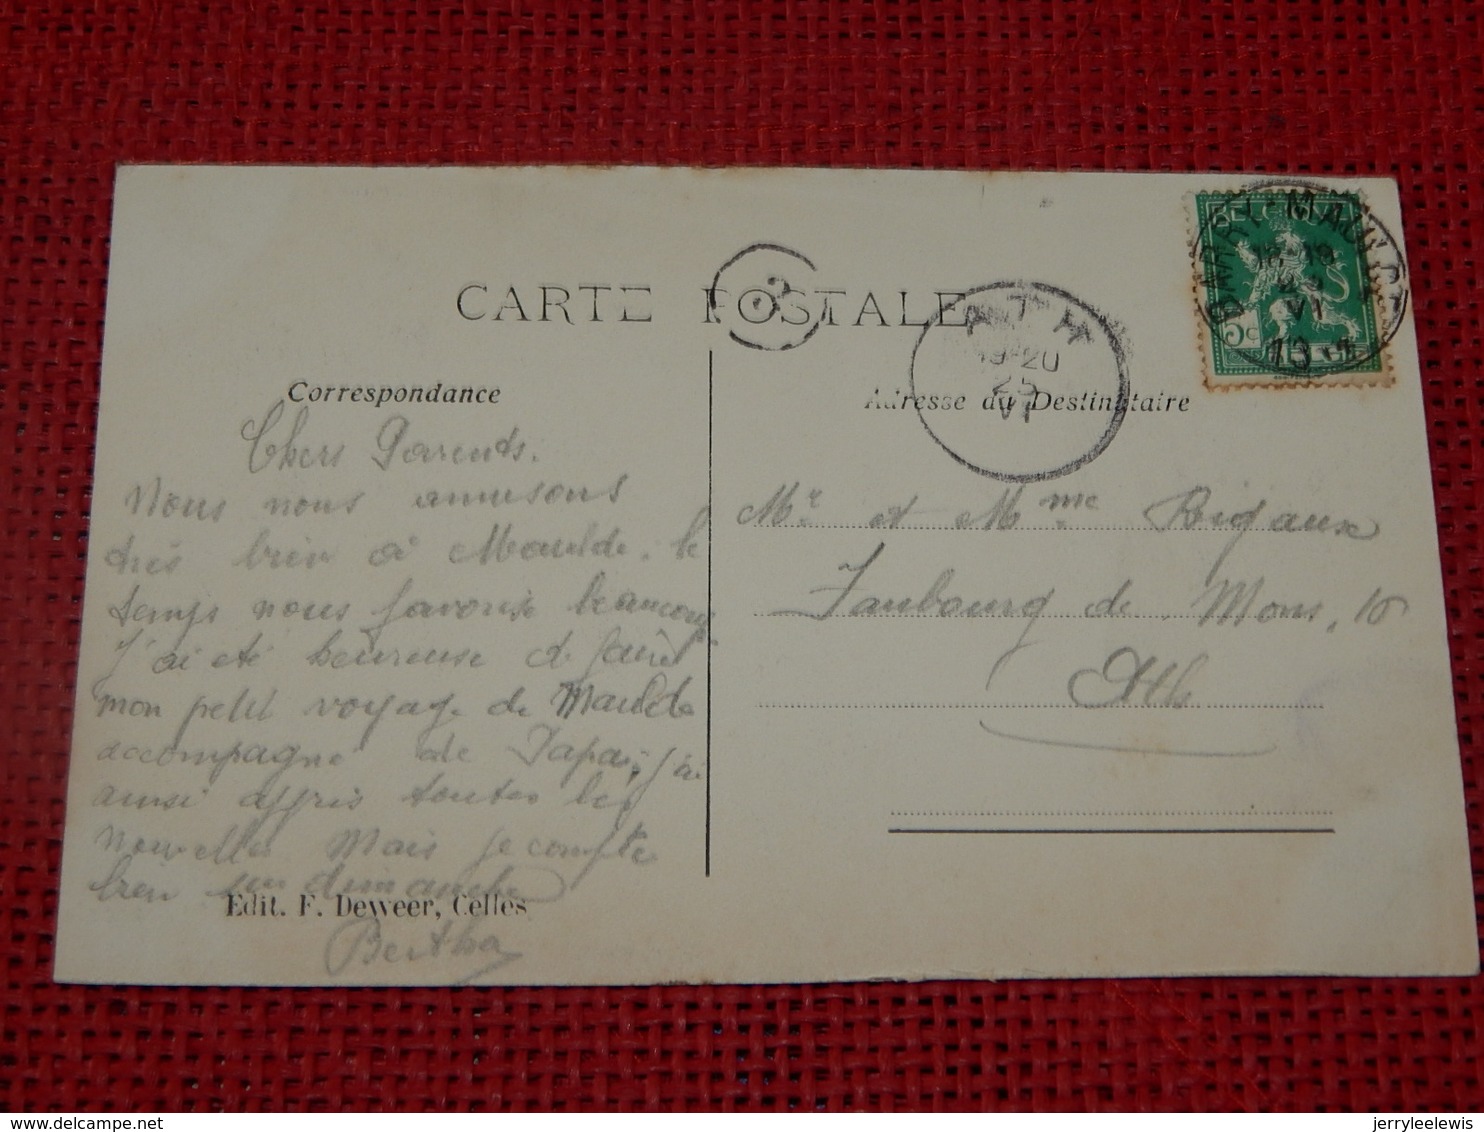 CARTE POSTALE
Correspondance
Chers Parents.
Nous nous amusons
très bien à Maulde. le
temps nous favorise beaucoup
J'ai été heureuse de faire
mon petit voyage de Maulde
accompagné de Papa, j'ai
ainsi appris toutes les
nouvelles Mais je compte
bien sur dimanche
Edit. F. Deweer, Celles
Bertha
Adresse du Destinataire
Mr et Mme Rigaux
Faubourg de Mons, 10
Ath
ATH
19-20
25
VI
BARRY-MAULDE
VI
BELGIQUE
5c
BELGIE
delcampe.net
jerryleelewis